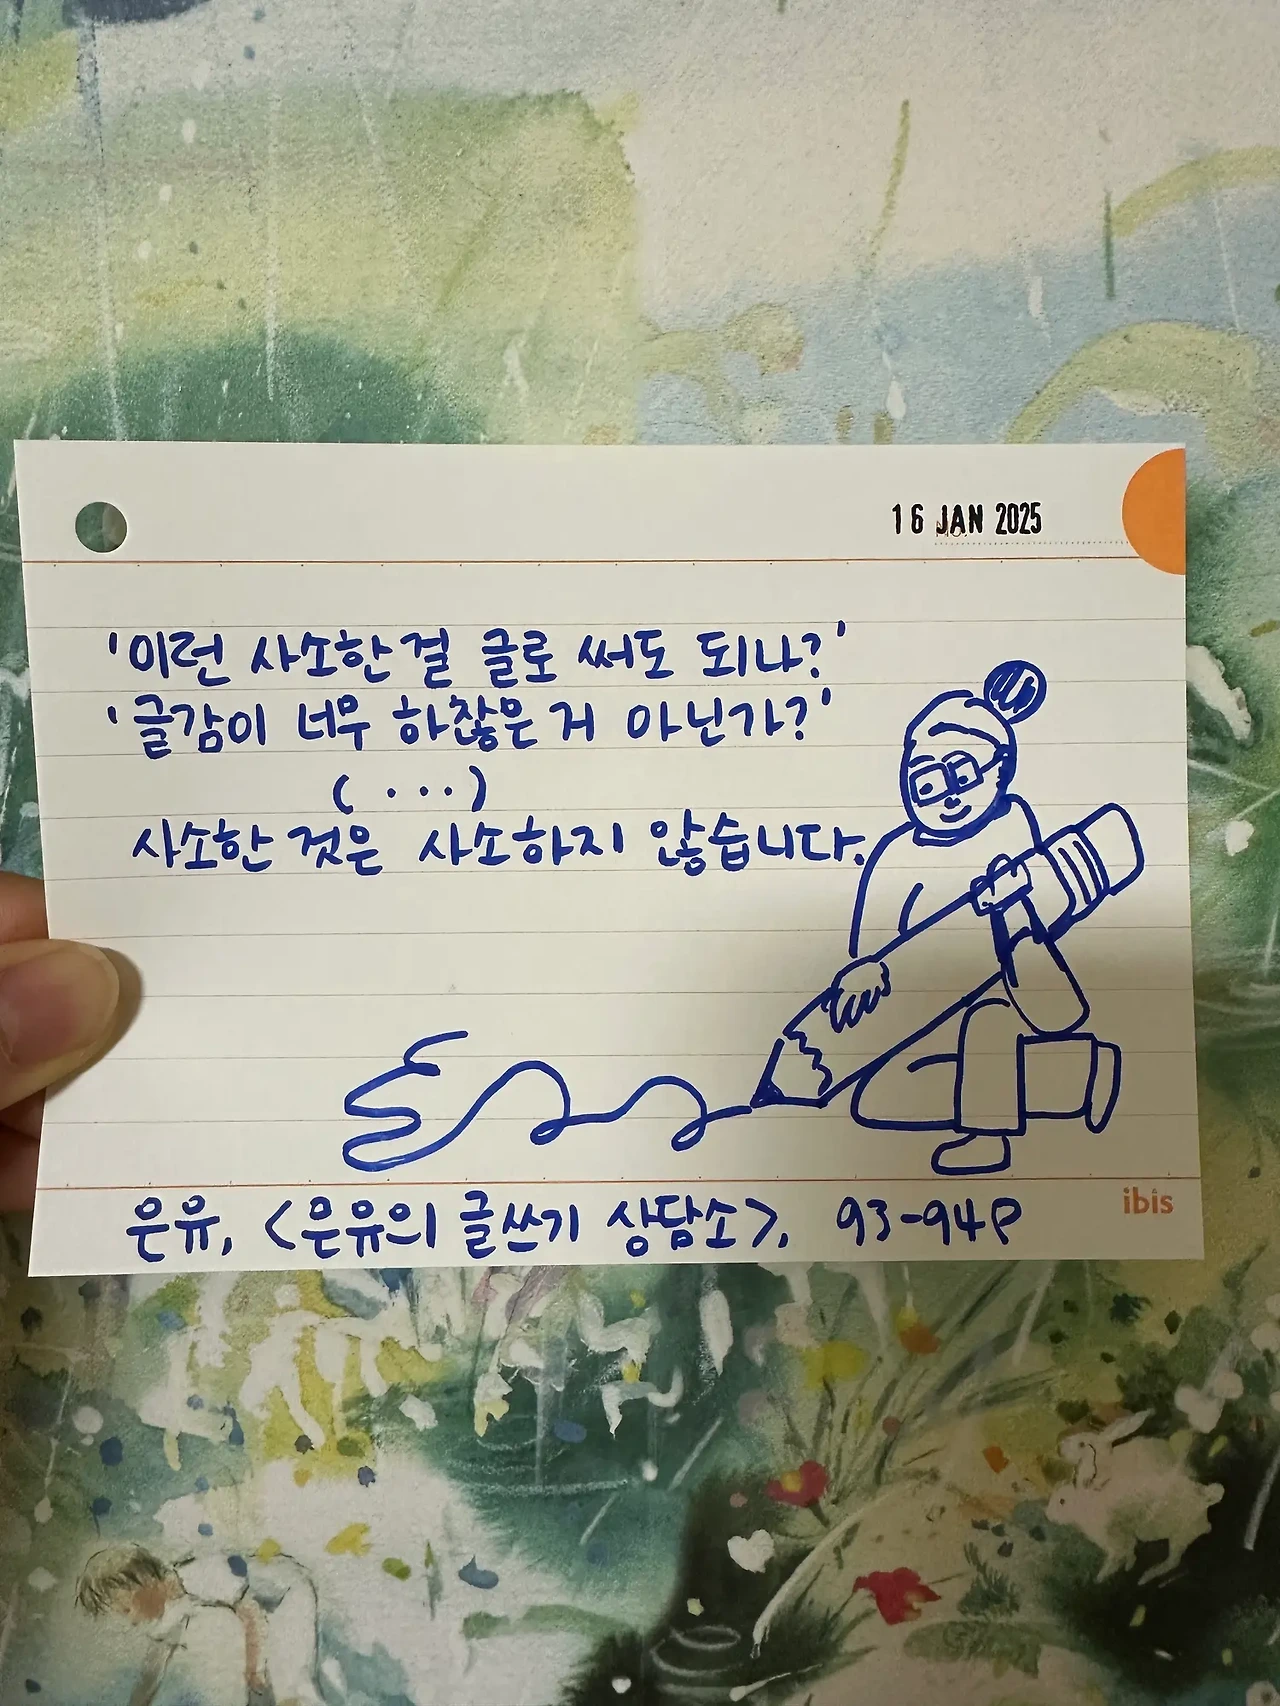 16 JAN 2025
'이런 사소한 걸 글로 써도 되나?'
'글감이 너무 하찮은 거 아닌가?'
(...)
사소한 것은 사소하지 않습니다.
은유, <은유의 글쓰기 상담소>, 93-94p
ibis